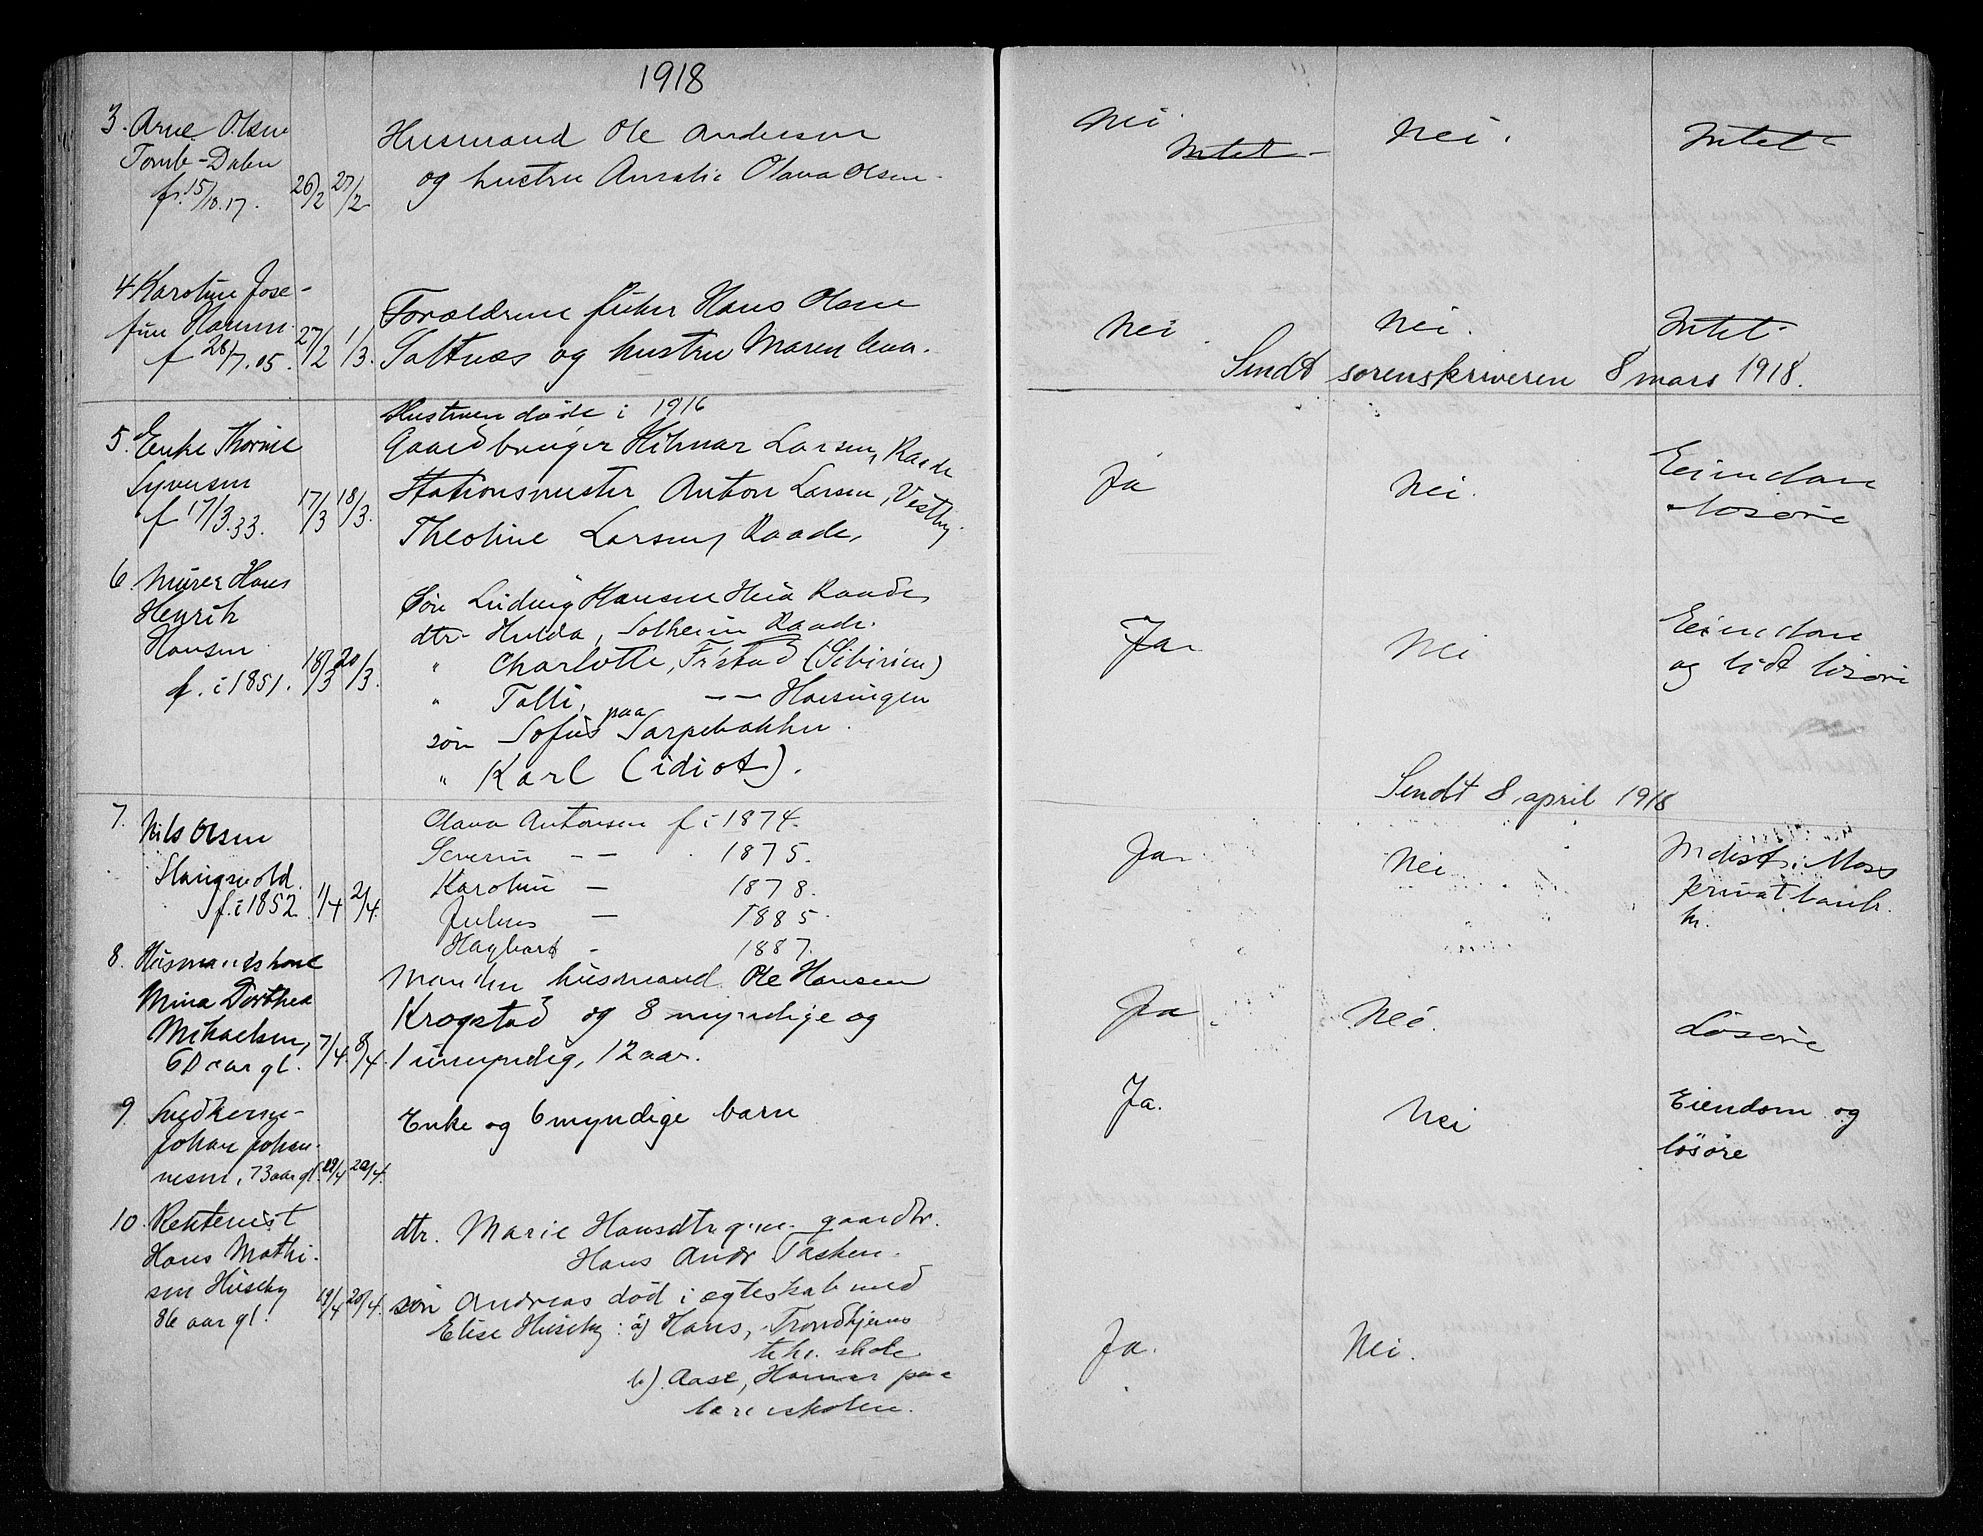 1918
3. Arne Olsen
Tomb-Dalen
f. 15/10.17. 26/2 27/2
Husmand Ole Andersen
og hustru Amalie Olava Olsen.
Nei. Intet Nei. Intet
4 Karoline Jose-
fine Hansen
f 28/7.05. 27/2 1/3.
Forældrene fisker Hans Olsen
Saltnes og hustru Maren
Nei. Nei. Intet
Sendt sorenskriveren 8 mars 1918.
5. Enke Thorine
Syversen
f 17/3.33. 17/3 18/3.
Hustruen døde i 1916
Gaardbruger Hilmar Larsen, Raade
Stationsmester Anton Larsen, Vestby.
Theoline Larsen, Raade,
Ja Nei. Eiendom
løsøre
6 Murer Hans
Henrik
Hansen
f. i 1851. 18/3 20/3.
Søn Ludvig Hansen Heia Raade,
dtr. Hulda, Solheim Raade.
" Charlotte, Fr.stad (Sibirien)
" Talli, — — Holsingen
søn Sofus paa Sarpebakken.
" Karl (idiot).
Ja Nei Eiendom
og lidt løsøre
Sendt 8 april 1918
7. Nils Olsen
Slangsvold
f. i 1852. 1/4 2/4.
Olava Antonsen f i 1874.
Severin — — 1875.
Karoline — 1878.
Julius — 1885.
Hagbart - 1887.
Ja Nei Indest. i Moss
privatbank
kr.
8. Husmandskone
Mina Dorthea
Mikaelsen,
60 aar gl. 7/4. 8/4.
Manden husmand Ole Hansen
Krogstad og 8 myndige og
1 umyndig, 12 aar.
Ja. Nei. Løsøre
9 Snedker
Johan Johan-
nesen, 73 aar gl. 19/4 20/4.
Enke og 6 myndige barn
Ja. Nei Eiendom og
løsøre
10. Rentenist
Hans Mathi-
sen Huseby
86 aar gl. 19/4 20/4.
dtr. Marie Hansdtr g.m. gaardbr.
Hans Andr Tasken.
søn Andreas død i egteskab med
Elise Huseby: a) Hans, Trondhjems
tekn. skole
b). Aase, Hamar paa
lærerskolen.
Ja. Nei.